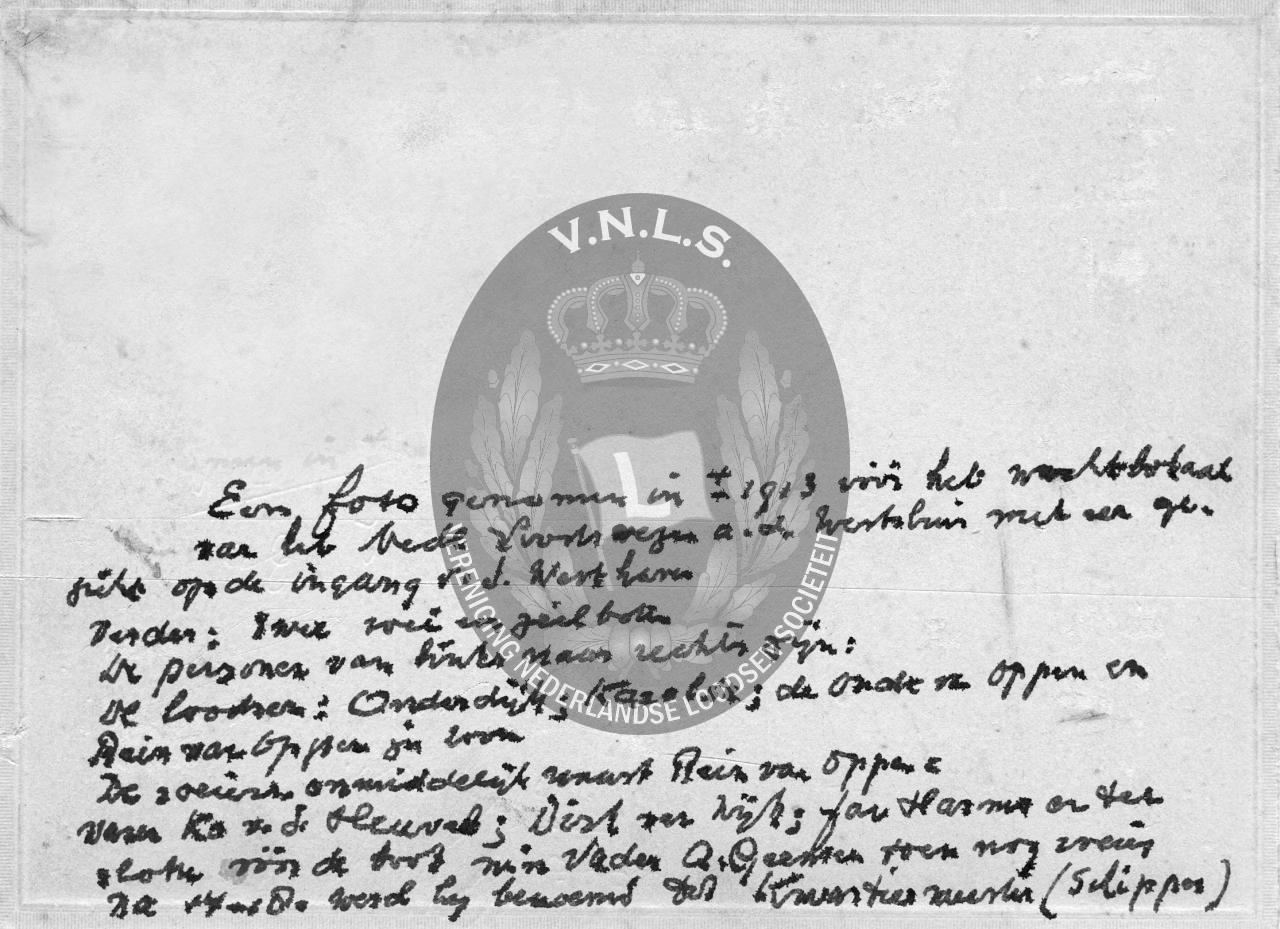 V.N.L.S.
L
VERENIGING NEDERLANDSE LOODSEN SOCIETEIT
Een foto genomen in ± 1913 vóór het wachtlokaal
van het Nedl. Loodswezen a.d. Westsluis met een ge-
zicht op de ingang v.d. Westhaven
Verder: twee roei en zeilboten
De personen van links naar rechts zijn:
De loodsen: Onderdijk; ; de Oude v. Oppen en
Rein van Oppen zijn zoon
De roeiers onmiddelijk naast Rein van Oppen
waren Ko v. d. Heuvel; Dirk van Wijk; Jan Harms en ten
slotte vóór de boot mijn Vader A. Geensen toen nog roeier
na werd hij benoemd tot Kwartiermeester (Schipper)